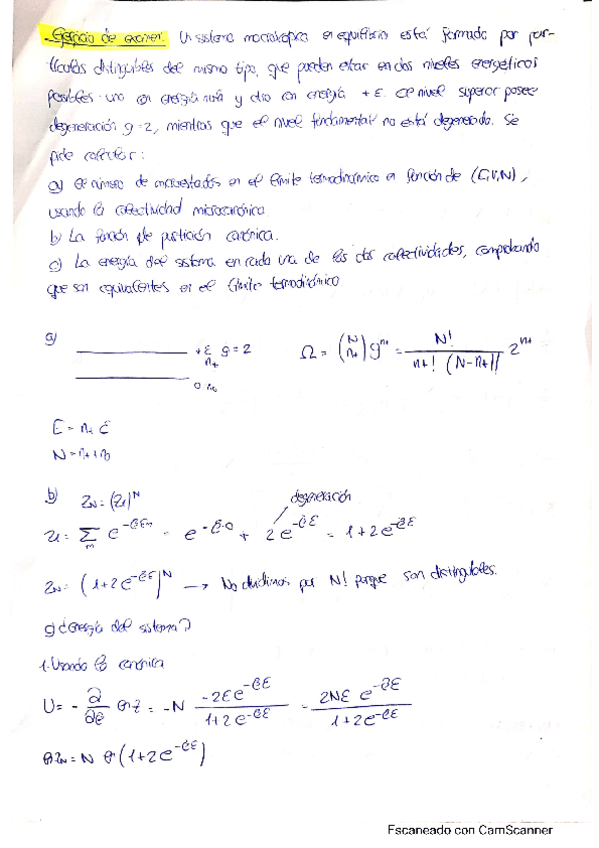 Ejercicio de examen: Un sistema macroscópico en equilibrio está formado por par-
tículas distinguibles del mismo tipo, que pueden estar en dos niveles energéticos
posibles: uno con energía nula y otro con energía +ε. El nivel superior posee
degeneración g=2, mientras que el nivel fundamental no está degenerado. Se
pide calcular:
a) El número de microestados en el límite termodinámico en función de (E,V,N),
usando la colectividad microcanónica
b) La función de partición canónica.
c) La energía del sistema en cada una de las dos colectividades, comprobando
que son equivalentes en el límite termodinámico
a)
+ε g=2
n+
0 n₀
Ω = (N n+) g^n+ = N! / n+! (N-n+)! 2^n+
E = n+ ε
N = n+ + n₀
b) Z_N = (Z₁)^N
degeneración
Z₁ = Σ_m e^-βEm = e^-β·0 + 2e^-βε = 1+2e^-βε
Z_N = (1+2e^-βε)^N → No dividimos por N! porque son distinguibles.
c) ¿Energía del sistema?
1. Usando la canónica
U = - ∂/∂β ln Z = -N -2εe^-βε / 1+2e^-βε = 2Nε e^-βε / 1+2e^-βε
ln Z_N = N ln (1+2e^-βε)
Escaneado con CamScanner